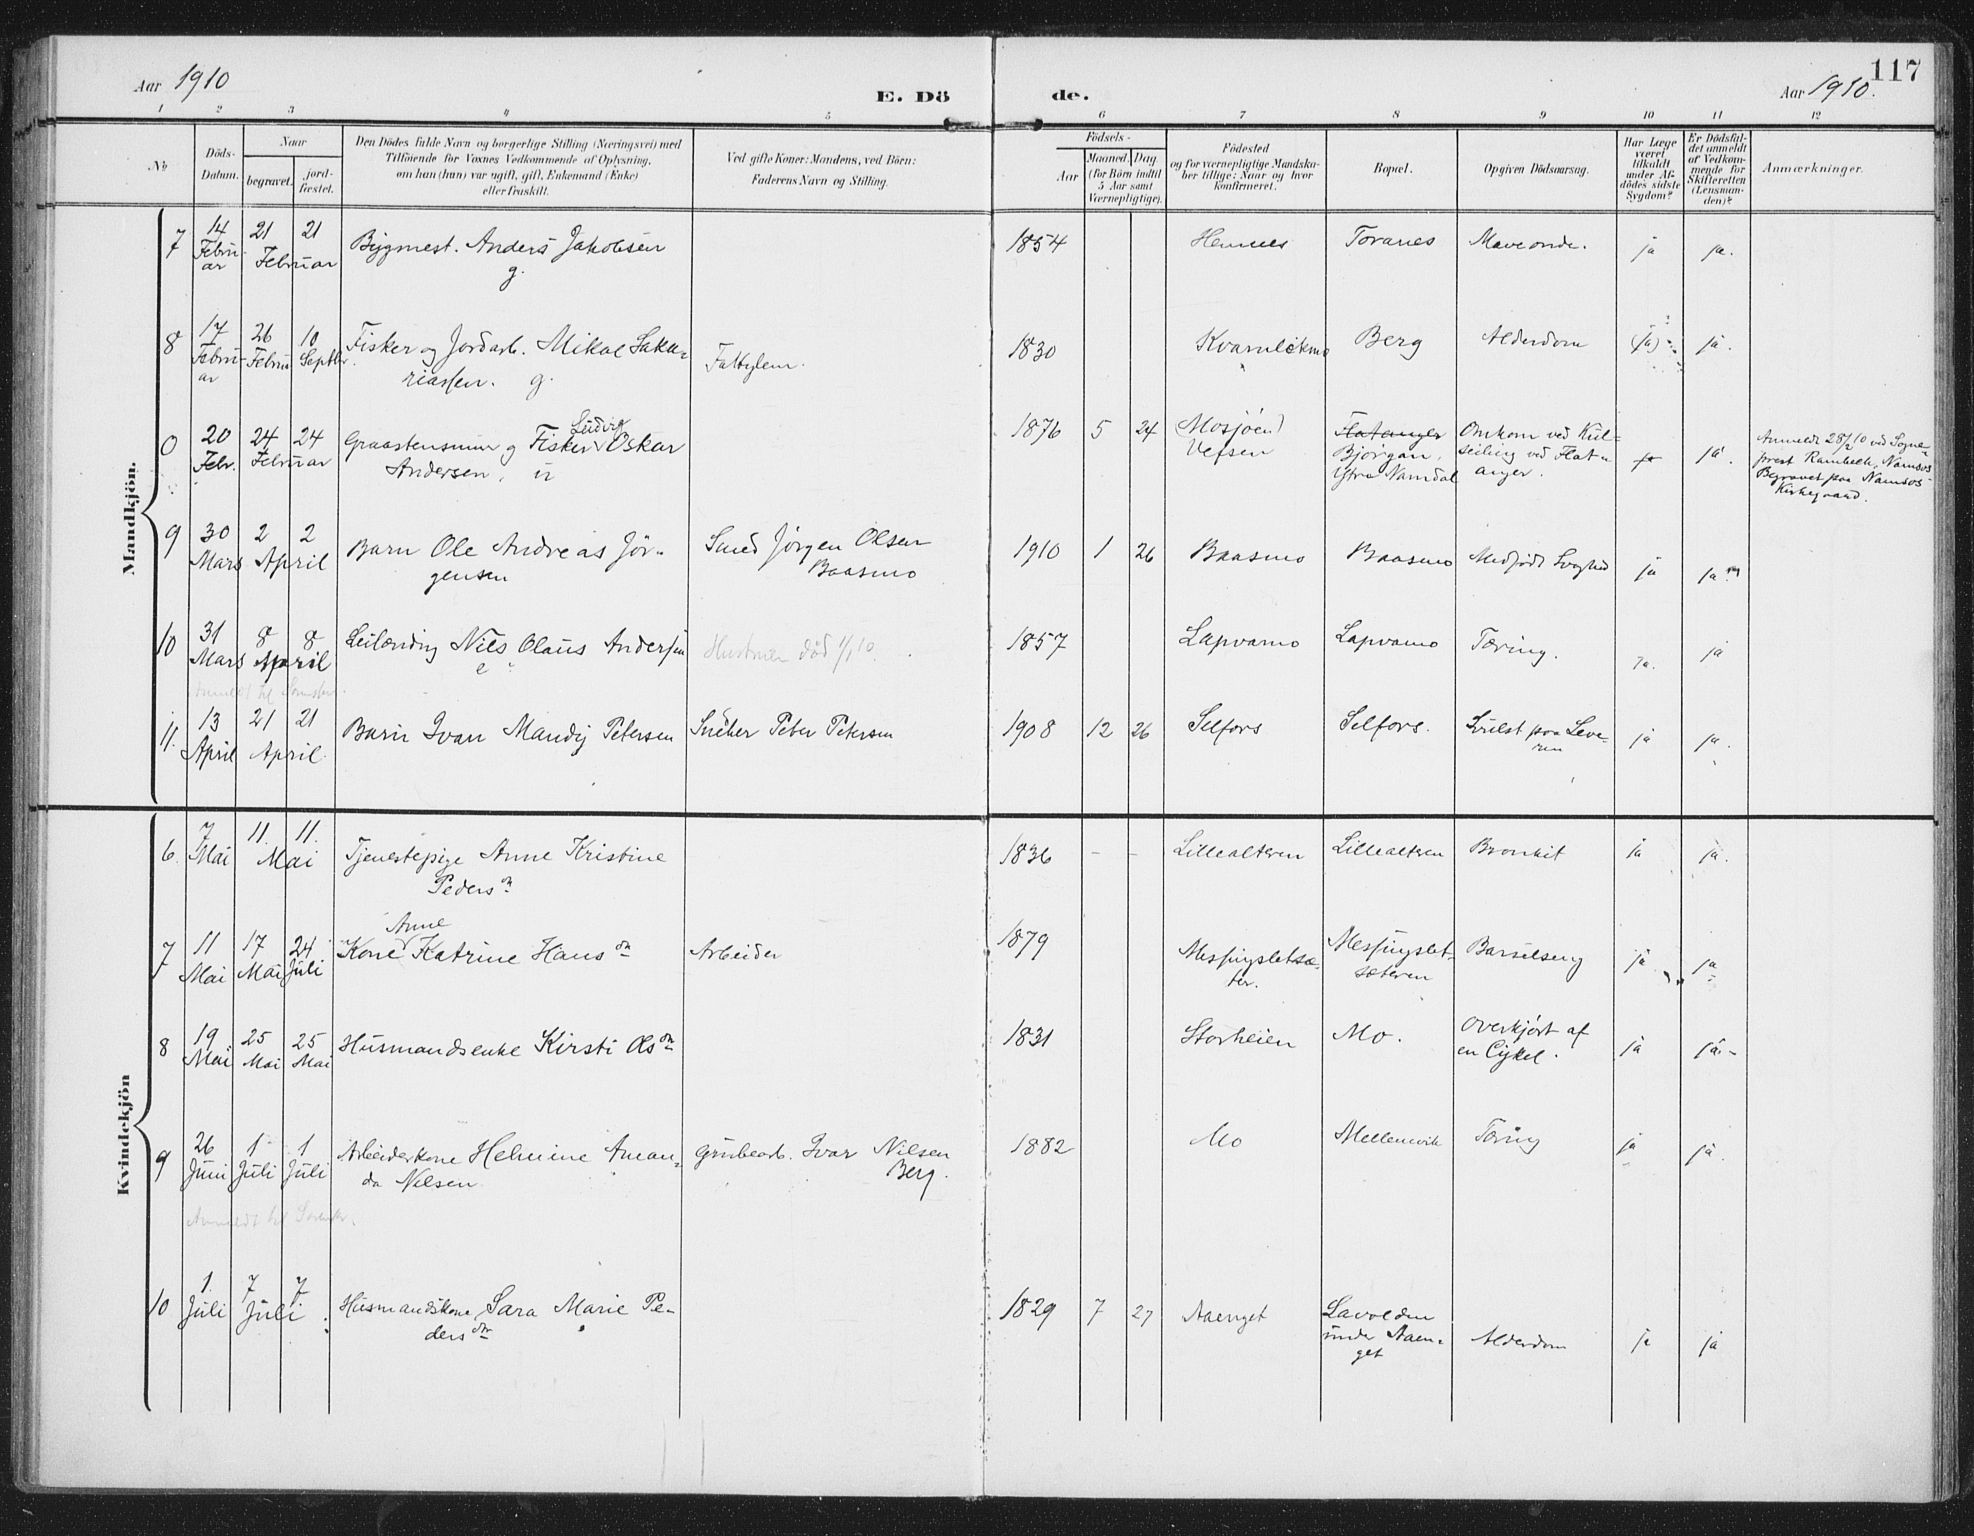 117
Aar 1910
E. Dö
de.
Aar 1910.
1 2 3 4 5 6 7 8 9 10 11 12
No
Döds-
Datum.
Naar
begravet.
jord-
fæstet.
Den Dödes fulde Navn og borgerlige Stilling (Næringsvei) med
Tilföiende for Voxnes Vedkommende af Oplysning,
om han (hun) var ugift, gift, Enkemand (Enke)
eller fraskilt.
Ved gifte Koner: Mandens, ved Börn:
Faderens Navn og Stilling.
Födsels-
Aar
Maaned. Dag.
(for Börn indtil
5 Aar samt
Værnepligtige).
Födested
og for værnepligtige Mandska-
ber tillige: Naar og hvor
konfirmeret.
Bopæl.
Opgiven Dödsaarsag.
Har Læge
været
tilkaldt
under Af-
dödes sidste
Sygdom?
Er Dödsfal-
det anmeldt
af Vedkom-
mende for
Skifteretten
(Lensman-
den)?
Anmærkninger.
Mandkjön.
7 14 Febru-
ar 21 21
Februar Bygmest. Anders Jakobsen
g. 1854 Hemnes Toranes Maveonde. ja ja.
8 17 Febru-
ar 26 Febru 10 Septbr. Fisker og Jordarb. Mikal Saka-
riassen. g. Fattiglem. 1830 Berg Alderdom (ja) ja.
0 20 Febr. 24 24
Februar Graastensmur g Fisker Ludvig Oskar
Andersen, u 1876 5 24 (Mosjøen)
Vefsen Flatanger
Bjørgan,
Ytre Namdal Omkom ved Kul-
seiling ved Flat-
anger. ja ja. Anmeldt 28/2 10 ved Sogne-
prest Rambech, Namsos
Begravet paa Namsos
Kirkegaard.
9 30 Mars 2 2
April Barn Ole Andreas Jör-
gensen Smed Jörgen Olsen
Baasmo 1910 1 26 Baasmo Baasmo Medfødt Svaghed ja ja.
10 31 Mars 8 8
April Leilænding Nils Olaus Andersen
e Hustruen död 1/1 10. 1857 Lapvamo Lapvamo Tæring. ja. ja
Anmeldt til
11. 13 April 21 21
April. Barn Ivar Mandij Petersen Snedker Peter Petersen 1908 12 26 Selfors Selfors. Svulst paa Leve-
ren ja ja.
Kvindekjön
6. 7 Mai 11. 11.
Mai Tjenestepige Anne Kristine
Pedersdr 1836 - - Lillealteren Lillealteren Bronkit ja ja.
7 11 Mai 17 Mai 24 Juli Kone Anne Katrine Hansdr Arbeider 1879 Messingsletsæ-
ter. Messingslet-
sæteren Barselseng ja ja
8 19 Mai 25 Mai 25 Mai Husmandsenke Kirsti Olsdr 1831 Storheien Mo. Overkjört af
en Cykel. ja ja.
9 26 Juni 1 Juli 1 Juli Arbeiderkone Helmine Aman-
da Nilsen Grubearb. Ivar Nilsen
Berg. 1882 Mo Mellemvik Tæring ja ja.
Anmeldt til
10 1 Juli 7 7
Juli. Husmandskone Sara Marie Pe-
dersdr 1829 7 27 Aaenget Lavolden
under Aaen-
get Alderdom ja ja